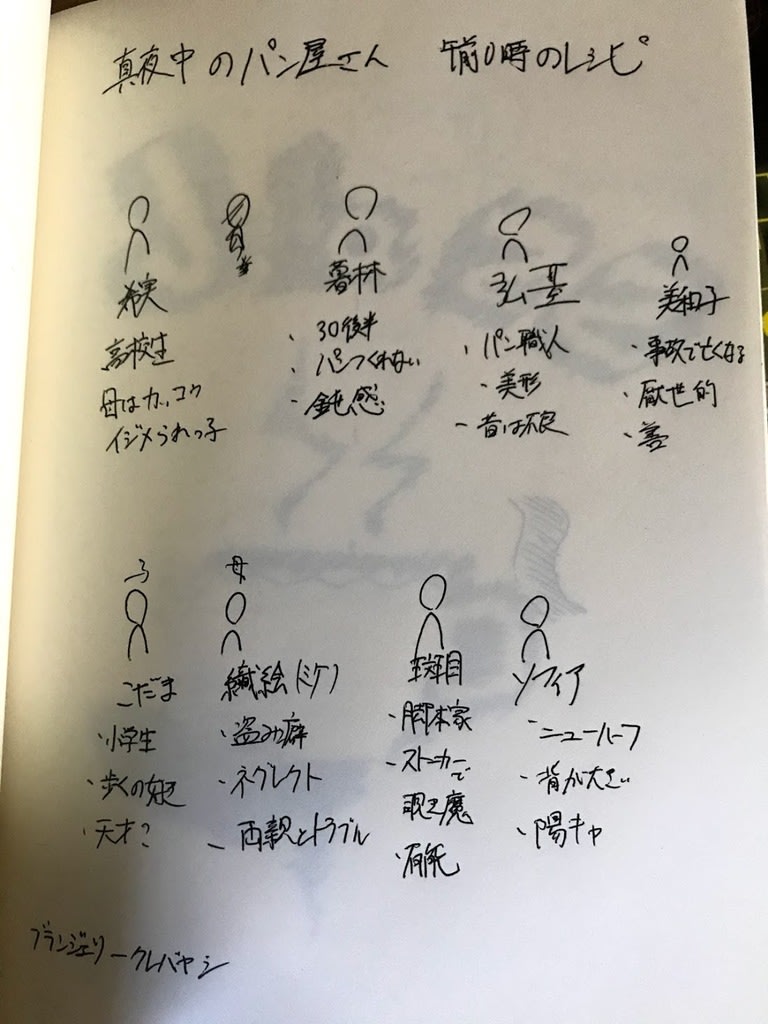 真夜中のパン屋さん 午前0時のレシピ
希実
高校生
母はカッコウ
イジメられっ子
暮林
・30後半
・パンつくれない
・鈍感
弘基
・パン職人
・美形
・昔は不良
美和子
・事故で亡くなる
・厭世的
・善
子
こだま
・小学生
・歩くの好き
・天才?
母
織絵(ミケ)
・盗み癖
・ネグレクト
・両親とトラブル
斑目
・脚本家
・ストーカーで
覗き魔
・有能
ソフィア
・ニューハーフ
・背が大きい
・陽キャ
ブランジェリークレバヤシ